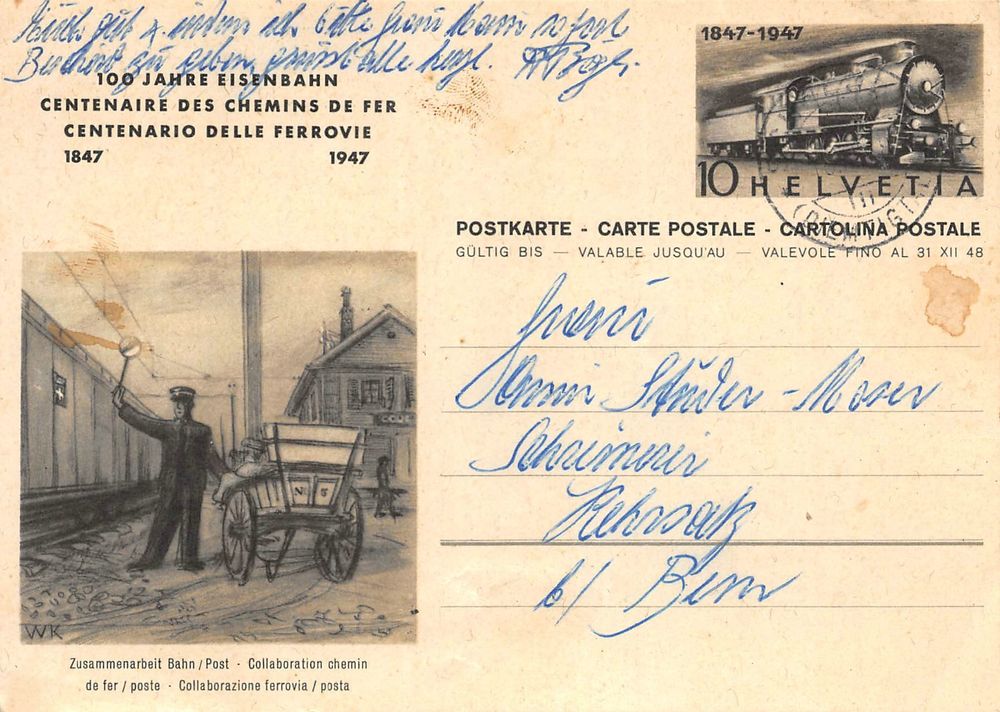 Auch gut
ich bitte Frau Moser sofort
Bescheid zu geben, grüsst alle herzl.
100 JAHRE EISENBAHN
CENTENAIRE DES CHEMINS DE FER
CENTENARIO DELLE FERROVIE
1847 1947
1847-1947
10 HELVETIA
(DIEMTIGT
POSTKARTE - CARTE POSTALE - CARTOLINA POSTALE
GÜLTIG BIS — VALABLE JUSQU'AU — VALEVOLE FINO AL 31 XII 48
Frau
Studer-Moser
Schreinerei
Kehrsatz
b/ Bern
N 5
WK
Zusammenarbeit Bahn / Post · Collaboration chemin
de fer / poste · Collaborazione ferrovia / posta